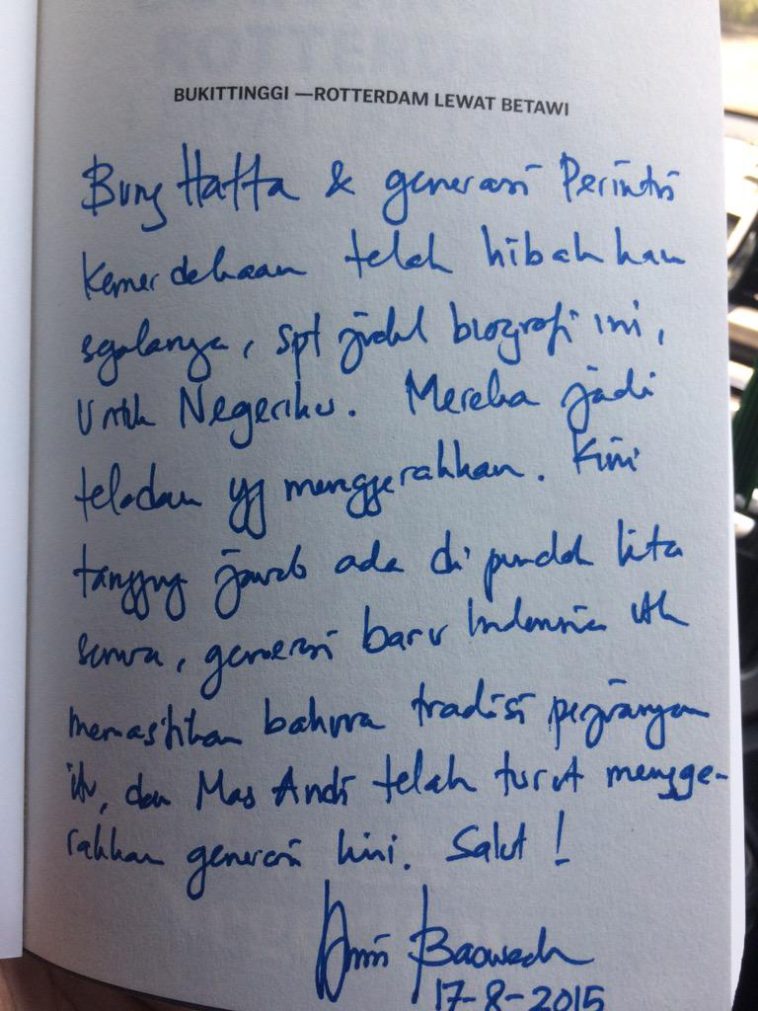 ROTTERDAM
BUKITTINGGI —ROTTERDAM LEWAT BETAWI
Bung Hatta & generasi Perintis
Kemerdekaan telah hibahkan
sgalanya, spt judul biografi ini,
Untuk Negeriku. Mereka jadi
teladan yg menggerakkan. Kini
tanggung jawab ada di pundak kita
semua, generasi baru Indonesia utk
memastikan bahwa tradisi perjuangan
itu, dan Mas Andi telah turut mengge-
rakkan generasi kini. Salut !
Anies Baswedan
17-8-2015